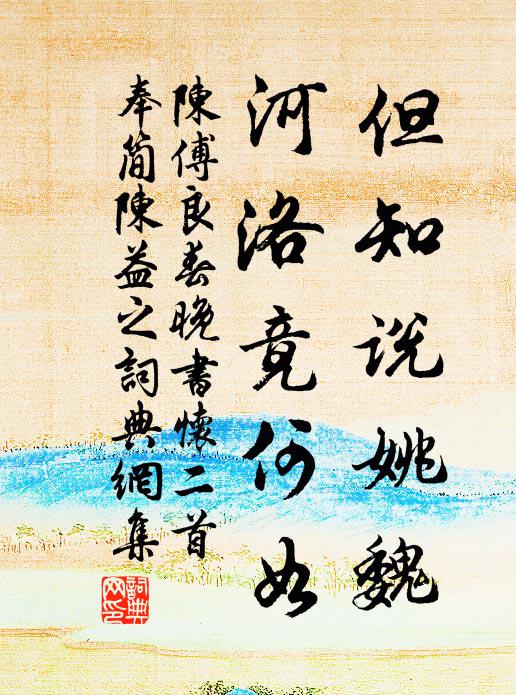 但知說姚魏
河洛竟何如
陳傅良春晚書懷二首
奉簡陳益之詞典網集